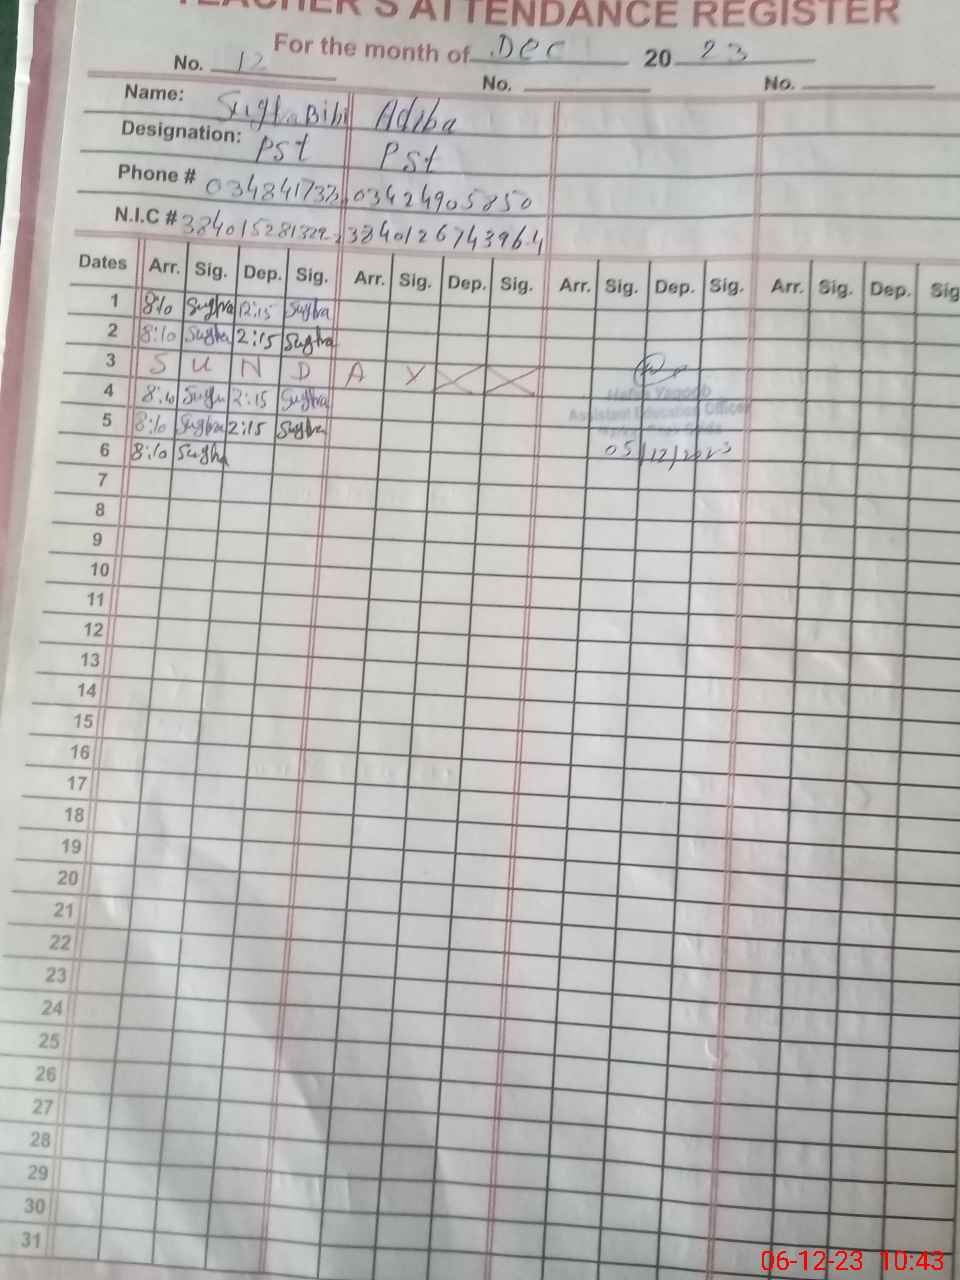 TEACHER'S ATTENDANCE REGISTER
For the month of Dec 2023
No. 12 No. No.
Name: Sughra Bibi Adiba
Designation: PST PST
Phone # 034841733 03424905850
N.I.C # 3840126743964
Dates Arr. Sig. Dep. Sig. Arr. Sig. Dep. Sig. Arr. Sig. Dep. Sig. Arr. Sig. Dep. Sig
1 8:10 Sughra 2:15 Sughra
2 8:10 Sughra 2:15 Sughra
3 S U N D A Y
4 8:10 Sughra 2:15 Sughra
Assistant Education Officer
5 8:10 Sughra 2:15 Sughra
6 8:10 Sughra 05/12/2023
7
8
9
10
11
12
13
14
15
16
17
18
19
20
21
22
23
24
25
26
27
28
29
30
31
06-12-23 10:43